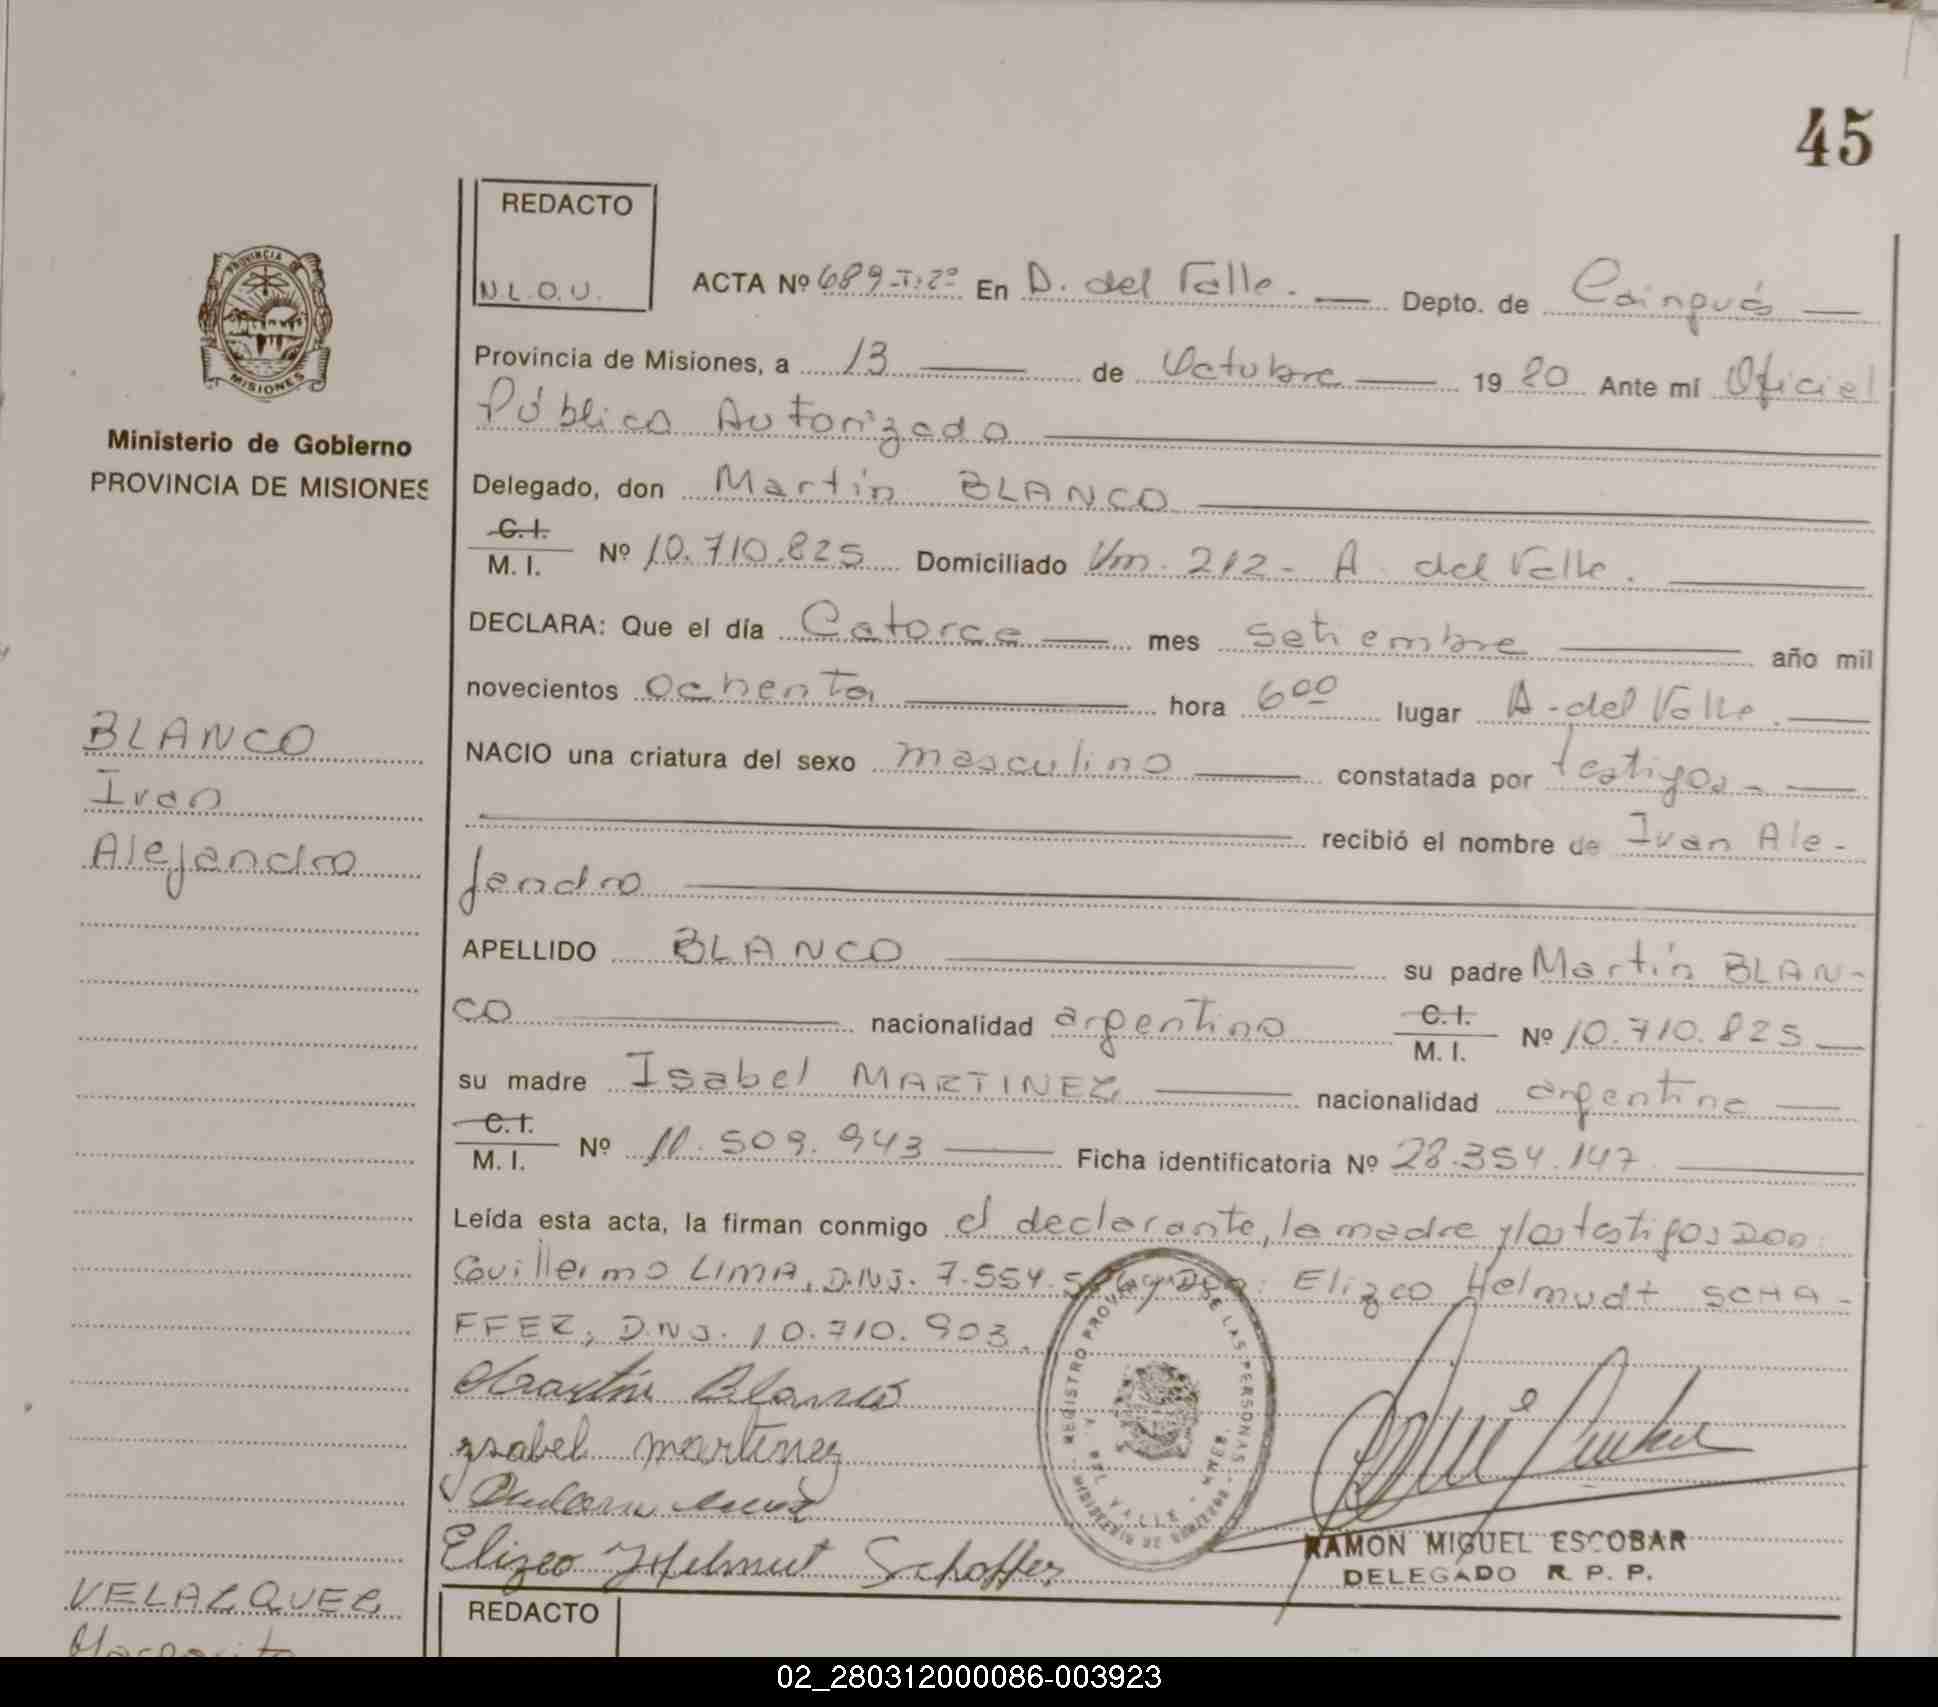 45
REDACTO
N.L.O.U.
PROVINCIA DE
MISIONES
Ministerio de Gobierno
PROVINCIA DE MISIONES
ACTA Nº 689-T:2º En D. del Valle. Depto. de Cainguás
Provincia de Misiones, a 13 de Octubre 19 80 Ante mí Oficial
Público Autorizado
Delegado, don Martín BLANCO
C.I. M. I. Nº 10.710.825 Domiciliado Km. 212 - A. del Valle.
DECLARA: Que el día Catorce mes setiembre año mil
novecientos ochenta hora 6 00 lugar A. del Valle.
NACIO una criatura del sexo masculino constatada por testigos.
recibió el nombre de Ivan Ale-
jandro
APELLIDO BLANCO su padre Martín BLAN-
CO nacionalidad argentino C.I. M. I. Nº 10.710.825
su madre Isabel MARTINEZ nacionalidad argentina
C.I. M. I. Nº 11.509.943 Ficha identificatoria Nº 28.354.147
Leída esta acta, la firman conmigo el declarante, la madre y los testigos Don:
Guillermo LIMA, D.N.I. 7.554. y Don: Elizeo Helmudt SCHA-
FFER, D.N.I. 10.710.903.
Martin Blanco
Ysabel martinez
Elizeo Helmut Schaffer
REGISTRO PROVINCIAL DE LAS PERSONAS
A. DEL VALLE - MISIONES
MINISTERIO DE GOBIERNO
RAMON MIGUEL ESCOBAR
DELEGADO R. P. P.
BLANCO
Ivan
Alejandro
VELAZQUEZ
Margarita
REDACTO
02_280312000086-003923